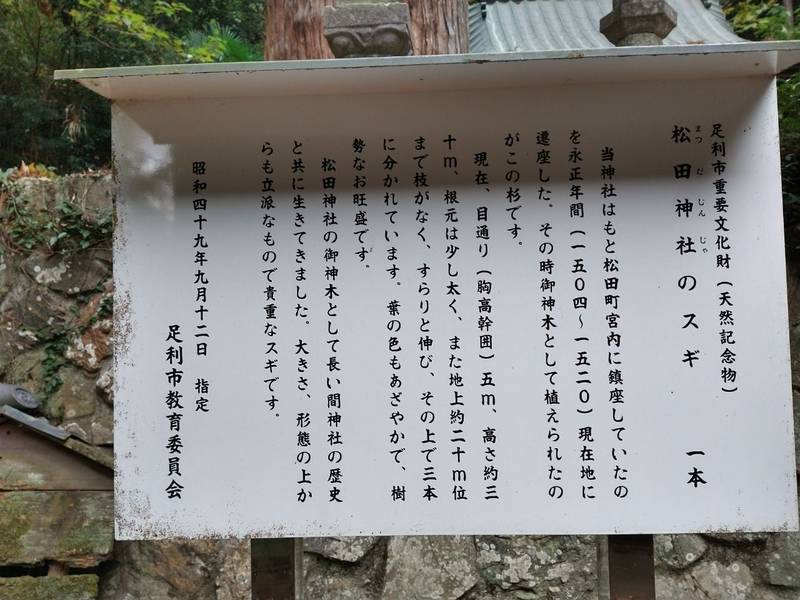 足利市重要文化財（天然記念物）
松田神社のスギ　一本
まつだじんじゃ
当神社はもと松田町宮内に鎮座していたの
を永正年間（一五〇四～一五二〇）現在地に
遷座した。その時御神木として植えられたの
がこの杉です。
現在、目通り（胸高幹囲）五ｍ、高さ約三
十ｍ、根元は少し太く、また地上約二十ｍ位
まで枝がなく、すらりと伸び、その上で三本
に分かれています。葉の色もあざやかで、樹
勢なお旺盛です。
松田神社の御神木として長い間神社の歴史
と共に生きてきました。大きさ、形態の上か
らも立派なもので貴重なスギです。
昭和四十九年九月十二日　指定
足利市教育委員会